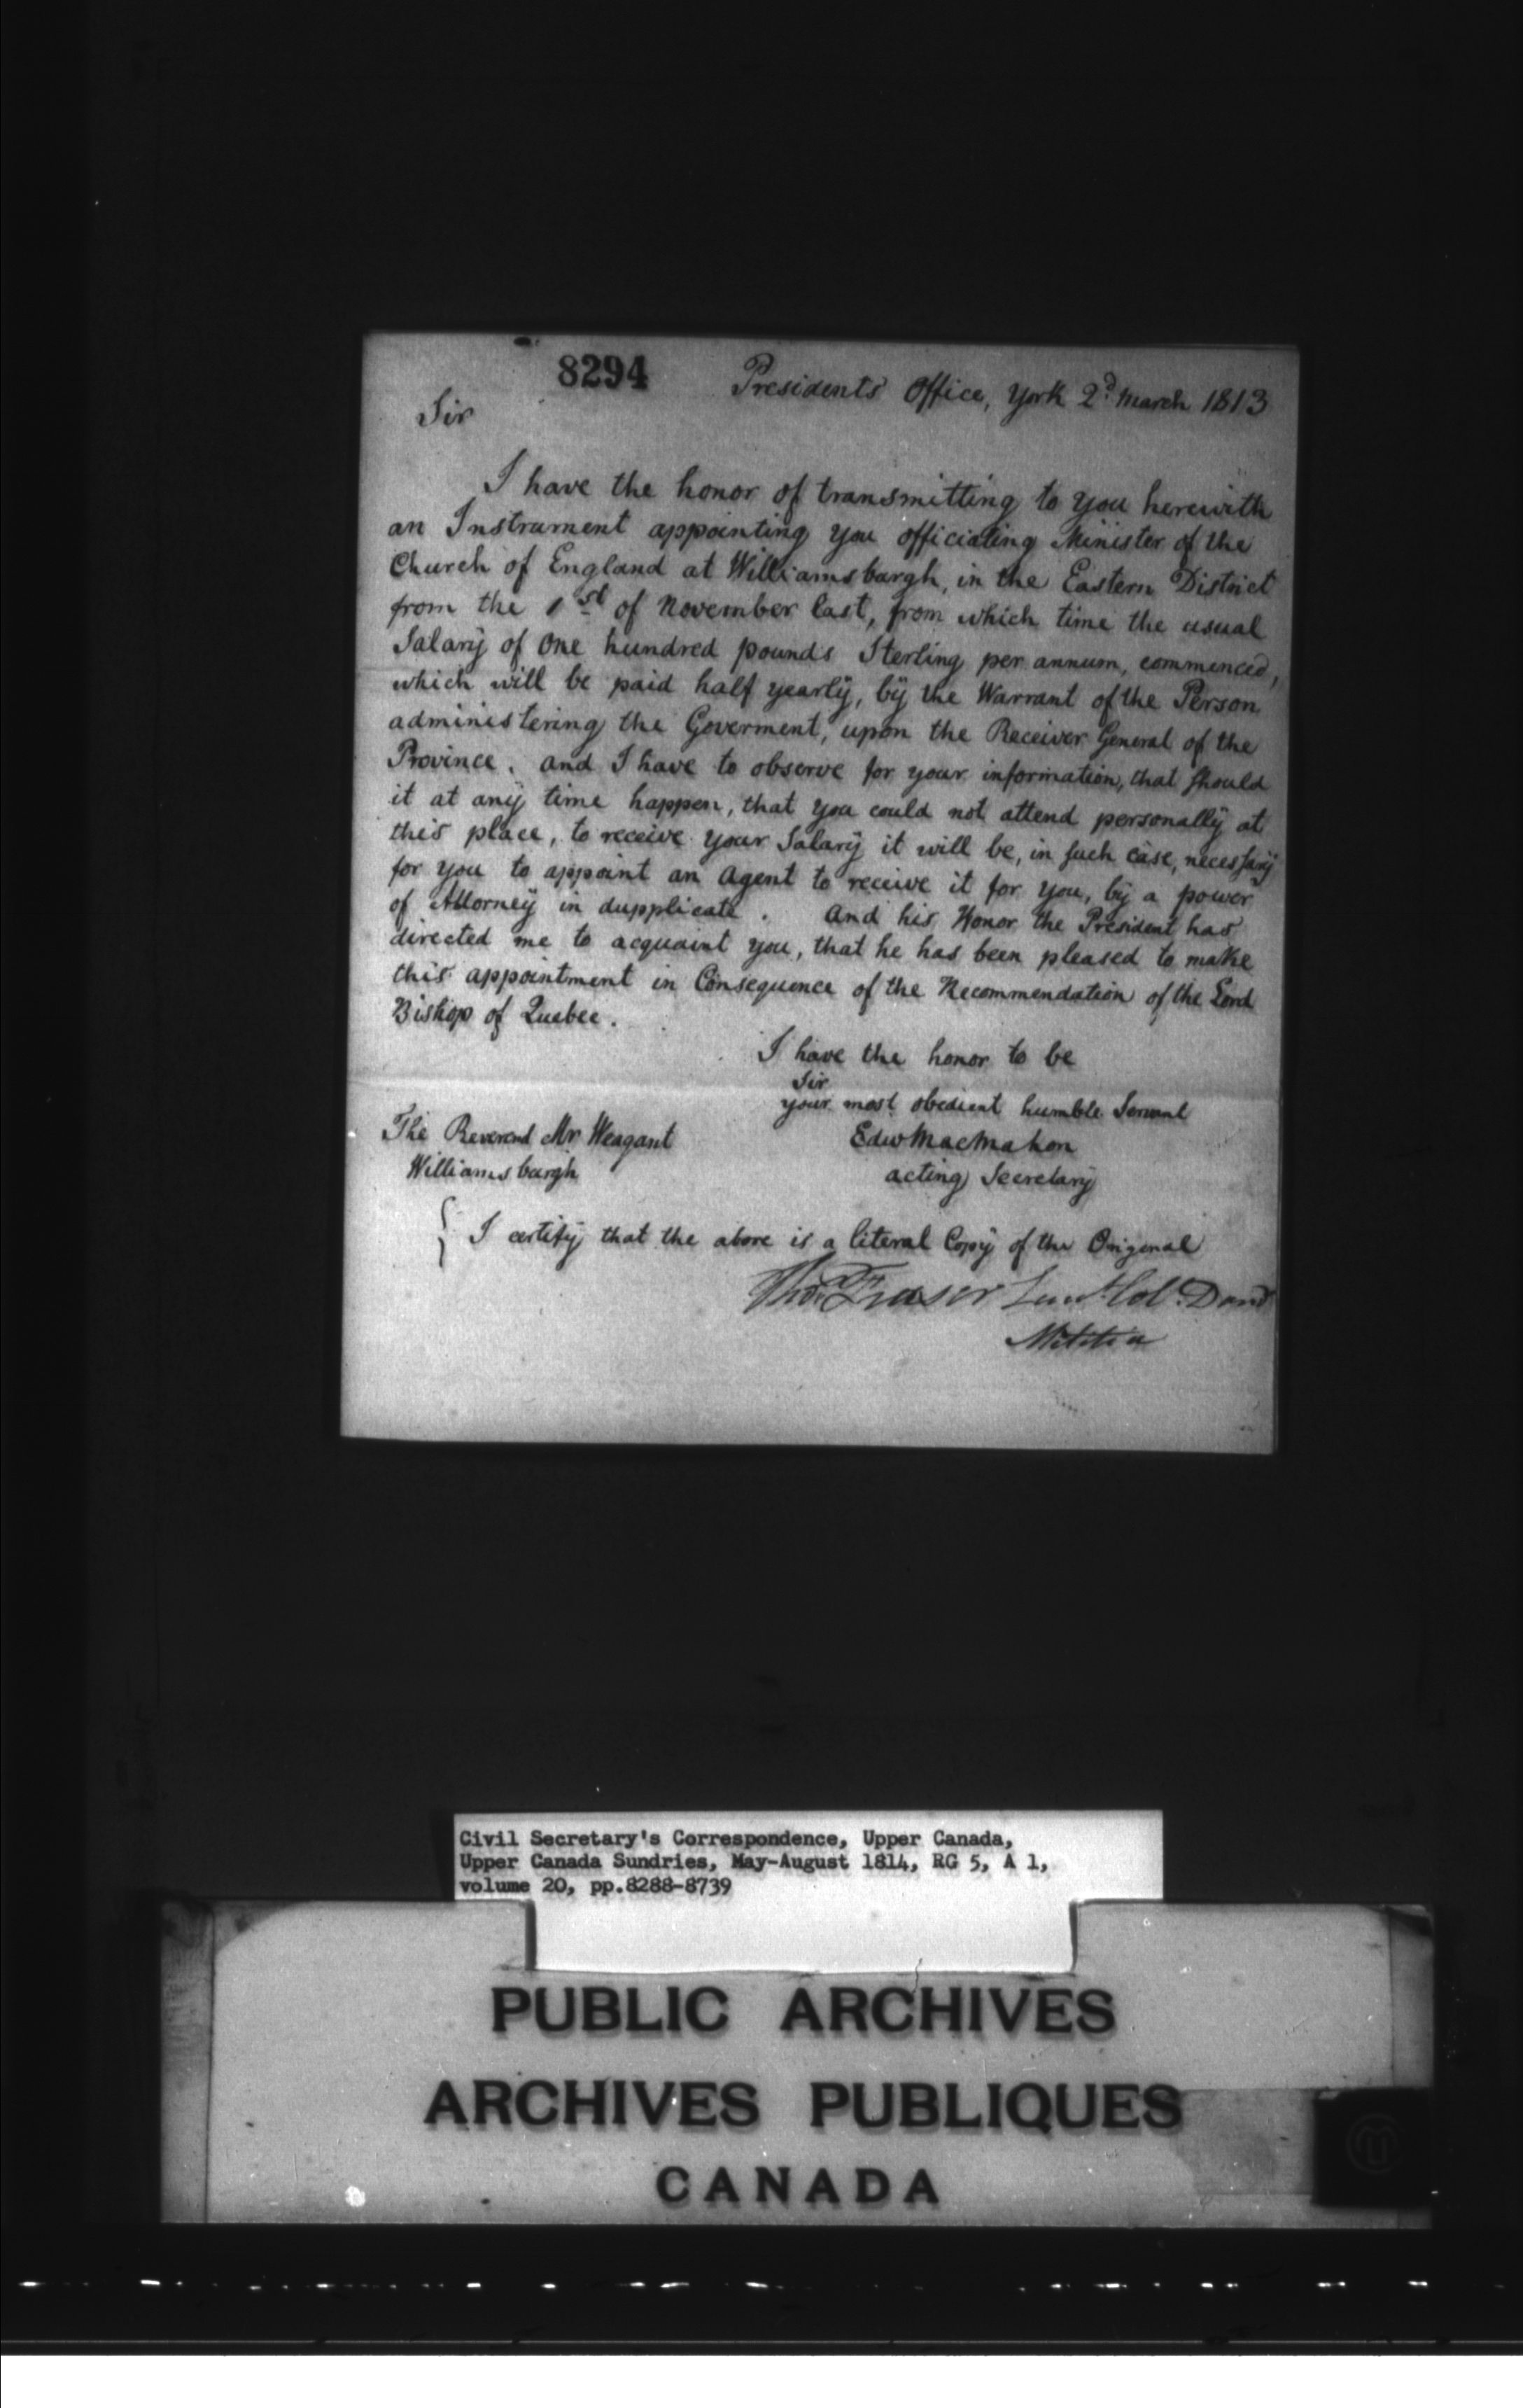 8294
Presidents Office, York 2d March 1813
Sir
I have the honor of transmitting to you herewith
an Instrument appointing you officiating Minister of the
Church of England at Williamsburgh, in the Eastern District
from the 1st of November last, from which time the usual
Salary of One hundred pounds Sterling per annum, commenced,
which will be paid half yearly, by the Warrant of the Person
administering the Goverment, upon the Receiver General of the
Province. and I have to observe for your information, that should
it at any time happen, that you could not attend personally at
this place, to receive your Salary it will be, in such case, necessary
for you to appoint an Agent to receive it for you, by a power
of Attorney in dupplicate. And his Honor the President has
directed me to acquaint you, that he has been pleased to make
this appointment in Consequence of the Recommendation of the Lord
Bishop of Quebec.
I have the honor to be
Sir
your most obedient humble Servant
Edw MacMahon
acting Secretary
The Reverend Mr Weagant
Williamsburgh
I certify that the above is a literal Copy of the Original
Thos Fraser Lieut Col. Dund
Militia
Civil Secretary's Correspondence, Upper Canada,
Upper Canada Sundries, May-August 1814, RG 5, A 1,
volume 20, pp.8288-8739
PUBLIC ARCHIVES
ARCHIVES PUBLIQUES
CANADA